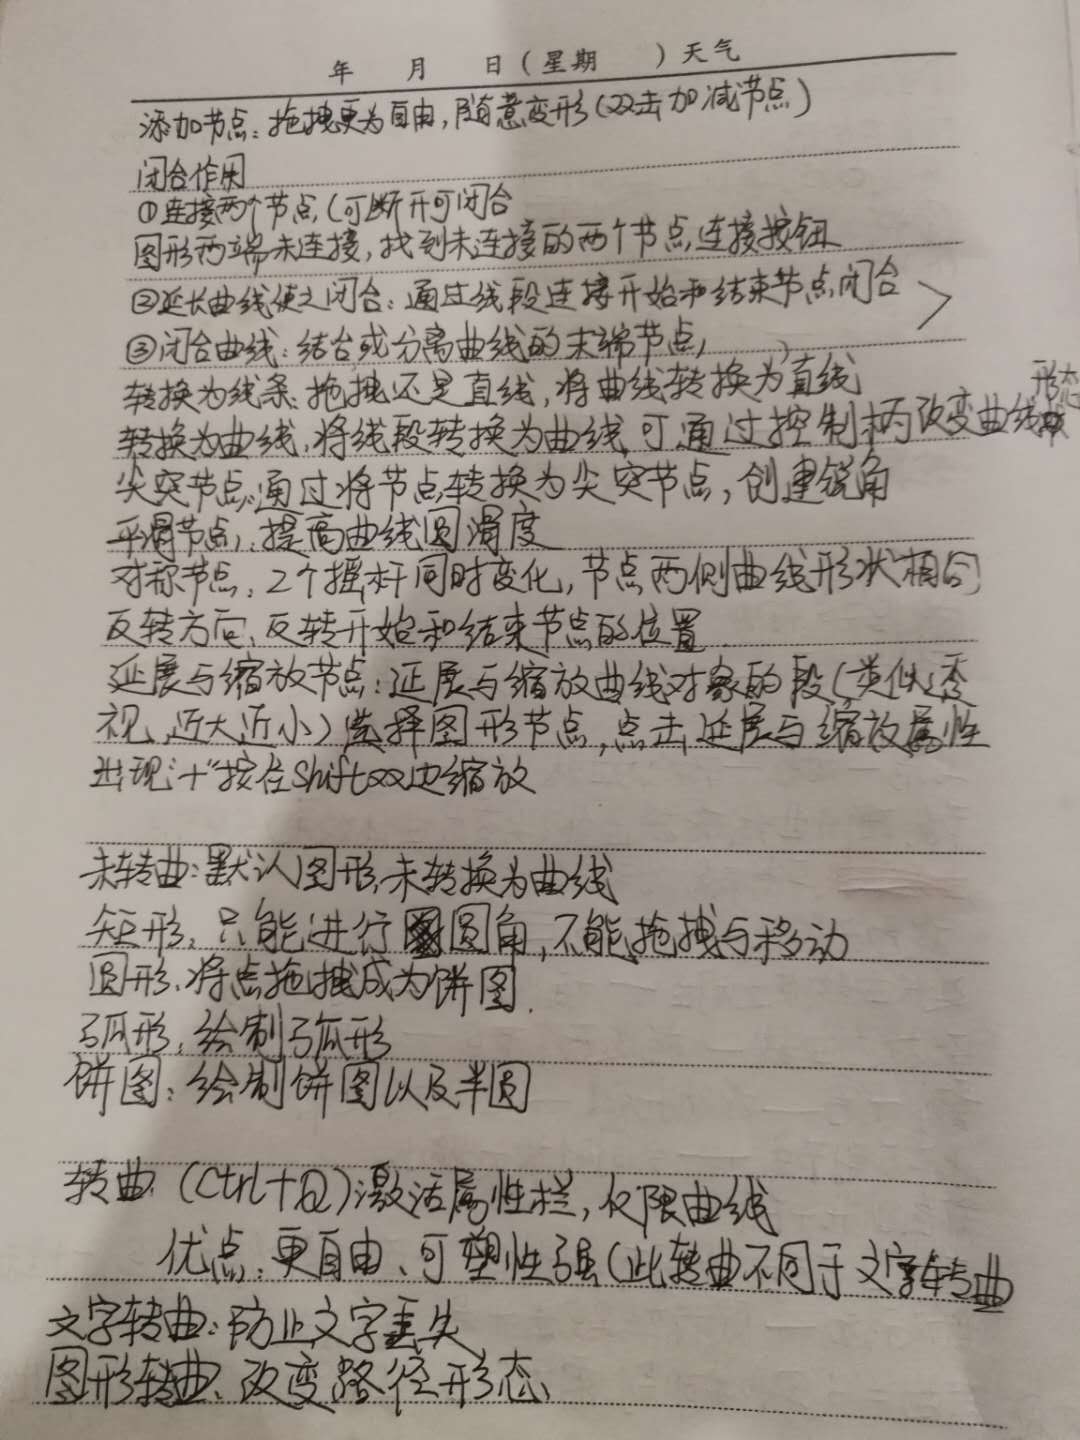 年 月 日（星期 ）天气
添加节点：拖拽更为自由，随意变形（双击加减节点）
闭合作用
①连接两个节点（可断开可闭合
图形两端未连接，找到未连接的两个节点，连接按钮
②延长曲线使之闭合：通过线段连接开始和结束节点闭合
③闭合曲线：结合或分离曲线的末端节点，
转换为线条：拖拽还是直线，将曲线转换为直线
转换为曲线，将线段转换为曲线，可通过控制柄改变曲线形态
尖突节点：通过将节点转换为尖突节点，创建锐角
平滑节点：提高曲线圆滑度
对称节点，2个摇杆同时变化，节点两侧曲线形状相同
反转方向、反转开始和结束节点的位置
延展与缩放节点：延展与缩放曲线对象的段（类似透
视，近大近小）选择图形节点，点击延展与缩放属性
出现"+"按住Shift双边缩放
未转曲：默认图形，未转换为曲线
矩形，只能进行圆角，不能拖拽与移动
圆形，将点拖拽成为饼图．
弧形，绘制弧形
饼图：绘制饼图以及半圆
转曲（Ctrl+Q）激活属性栏，仅限曲线
优点：更自由、可塑性强（此转曲不同于文字转曲
文字转曲：防止文字丢失
图形转曲、改变路径形态、